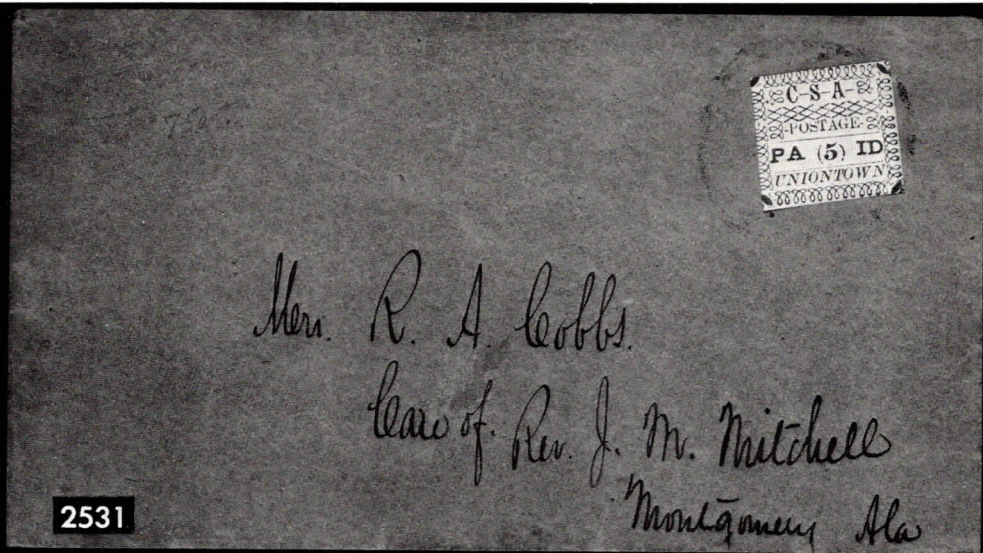 C-S-A-
-POSTAGE-
PA (5) ID
UNIONTOWN
Mrs. R. A. Cobbs.
Care of. Rev. J. M. Mitchell
Montgomery Ala
2531